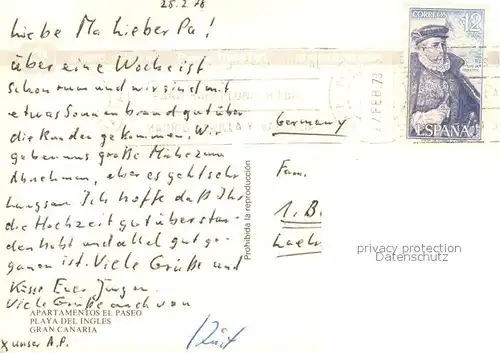 25.2.78
Liebe Ma lieber Pa!
über eine Woche ist
schon rum und wir sind mit
etwas Sonnenbrand gut über
die Runden gekommen. Wir
geben uns große Mühe zum
Abnehmen, aber es geht sehr
langsam. Ich hoffe daß Ihr
die Hochzeit gut überstan-
den habt und alles gut ge-
gangen ist. Viele Grüße und
Küsse Euer Jürgen.
Viele Grüße auch von
APARTAMENTOS EL PASEO
PLAYA DEL INGLES
GRAN CANARIA
x unser A.P.
Prohibida la reproducción
CORREOS 12
ESPAÑA
FEB. 78
Germany
Fam.
privacy protection
Datenschutz